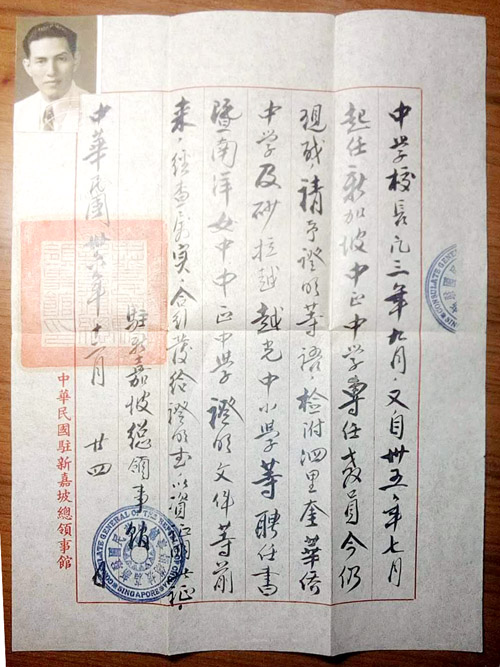 中学校長凡三年九月，又自卅五年七月
起任新加坡中正中学專任教員今仍
現職，請予證明等語，檢附泗里奎華僑
中学及砂拉越越光中小學等聘任書
暨南洋女中中正中學證明文件等前
來，經查屬實，合行發給證明書，以資證明此證。
駐新嘉坡總領事館
中華民國卅六年十二月廿四日
中華民國駐新嘉坡總領事館
CONSULATE GENERAL OF THE
SINGAPORE
CONSULATE GENERAL